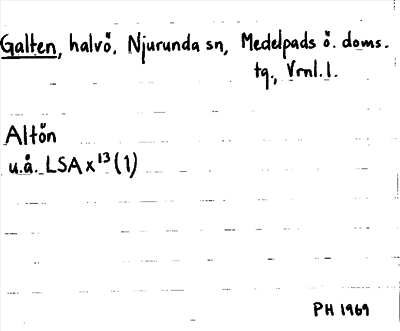 Galten, halvö. Njurunda sn, Medelpads ö. doms.
tg., Vrnl. l.
Altön
u.å. LSA x¹³ (1)
PH 1969